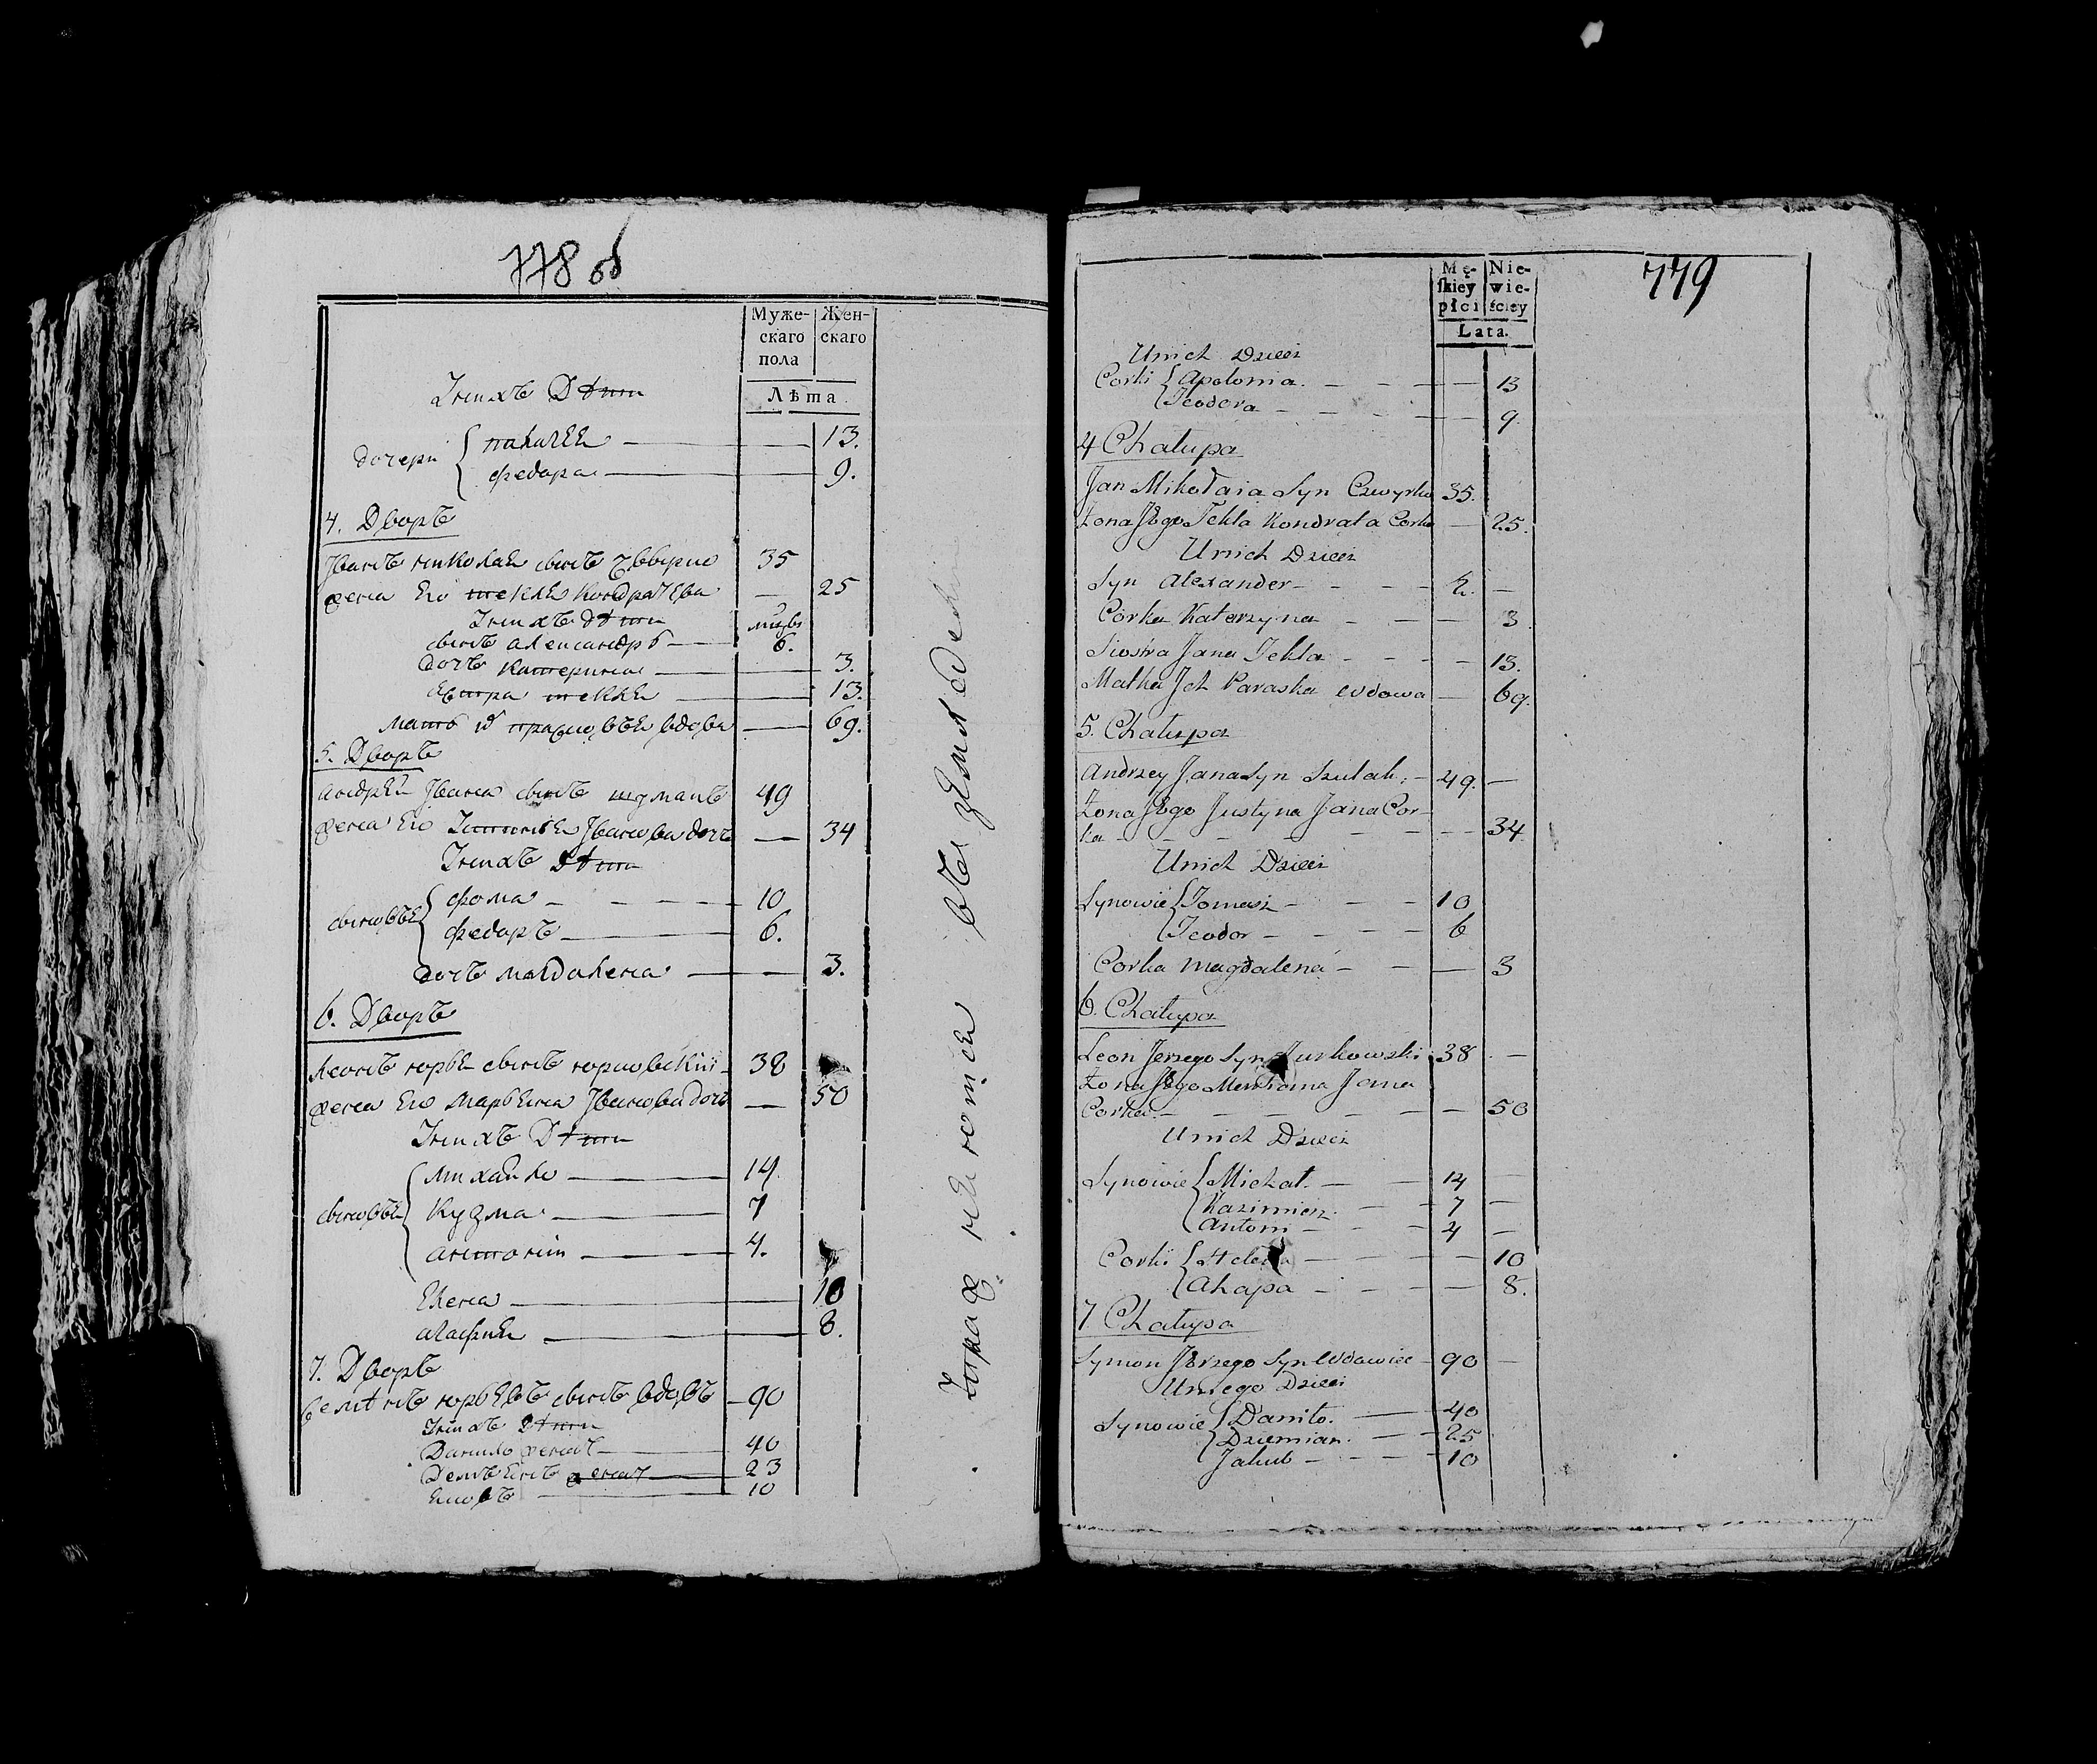 778 об
Муже- Жен-
скаго скаго
пола
Лѣта
Унихъ Дѣти
дочери
13.
федора 9.
4. Дворъ
Иванъ николая сынъ 35
жена Его текля кондратева — 25
Унихъ дѣти
сынъ александръ 6.
дочъ катерина 3.
текля 13.
мать вдова 69.
5. Дворъ
андрей Ивана сынъ 49
жена Его Устинья Иванова дочъ — 34
Унихъ Дѣти
сыновья фома 10
федоръ 6.
дочъ магдалена 3.
6. Дворъ
леонъ юрья сынъ юрковский 38
жена Его марьяна Иванова дочъ — 50
Унихъ Дѣти
михайло 14.
сыновья кузма 7
антоний 4.
Елена 10
агафия 8.
7. Дворъ
юрьевъ сынъ вдовъ 90
Унихъ Дѣти
Данило женатъ 40
Демьянъ женатъ 23
10
779
Mę- Nie-
ſkiey wie-
płci ściey
Lata.
Unich Dzieci
Corki Apolonia. 13
Teodora 9
4 Chałupa
Jan Mikołaia Syn 35.
Żona Jego Tekla Kondrata Corka — 25.
Unich Dzieci
Syn Alexander 2. —
Corka Katarzyna 3
Siostra Jana Tekla 13.
Matka Jch Paraska wdowa — 69.
5. Chałupa
Andrzey Jana Syn Szulak 49. —
Żona Jego Justyna Jana Cor-
ka 34
Unich Dzieci
Synowie Tomasz 10
Teodor 6
Corka Magdalena 3
6. Chałupa
Leon Jerzego Syn Jurkowski 38 —
Żona Jego Maryanna Jana
Corka 50
Unich Dzieci
Synowie Michał. 14 —
Kazimierz 7 —
Antoni 4 —
Corki Helena 10
Ahapa 8.
7. Chałupa
Symon Jerzego Syn Wdowiec 90 —
Uniego Dzieci
Synowie Daniło. 40
Dziemian. 25
Jakub 10